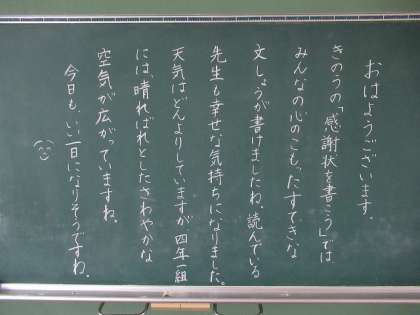 おはようございます。
きのうの「感謝状を書こう」では
みんなの心のこもったすてきな
文しょうが書けましたね。読んでいる
先生も幸せな気持ちになりました。
天気はどんよりしていますが、四年一組
には、晴ればれとしたさわやかな
空気が広がっていますね。
今日も、いい一日になりそうですね。